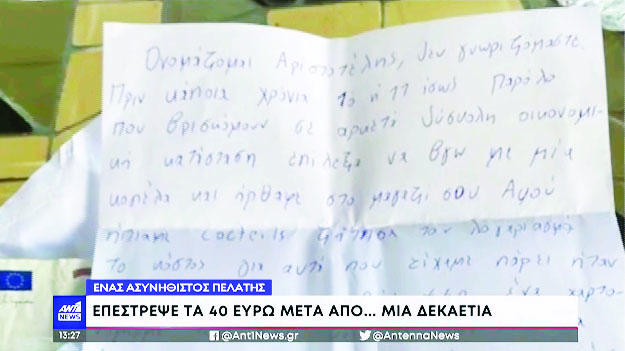 Ονομάζομαι Αριστοτέλης, δεν γνωριζόμαστε.
Πριν κάποια χρόνια 10 ή 11 ίσως Παρόλο
που βρισκόμουν σε αρκετά δύσκολη οικονομι-
κή κατάσταση επέλεξα να βγω με μία
κοπέλα και ήρθαμε στο μαγαζί σου Αφού
ήπιαμε cocteils ζήτησα τον λογαριασμό
το κόστος για αυτά που είχαμε πάρει ήταν
ένα χαρτο-
ΕΝΑΣ ΑΣΥΝΗΘΙΣΤΟΣ ΠΕΛΑΤΗΣ
ΑΝΤ1
NEWS
ΕΠΕΣΤΡΕΨΕ ΤΑ 40 ΕΥΡΩ ΜΕΤΑ ΑΠΟ... ΜΙΑ ΔΕΚΑΕΤΙΑ
13:27
@Ant1News.gr
@AntennaNews